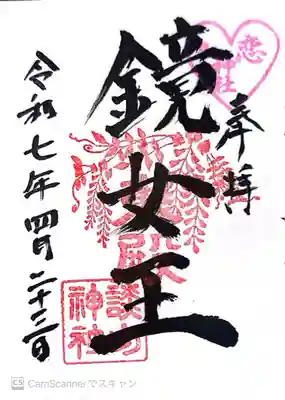 恋
奉拝
鏡女王
殿
談山
神社
令和七年四月二十三日
CS CamScannerでスキャン